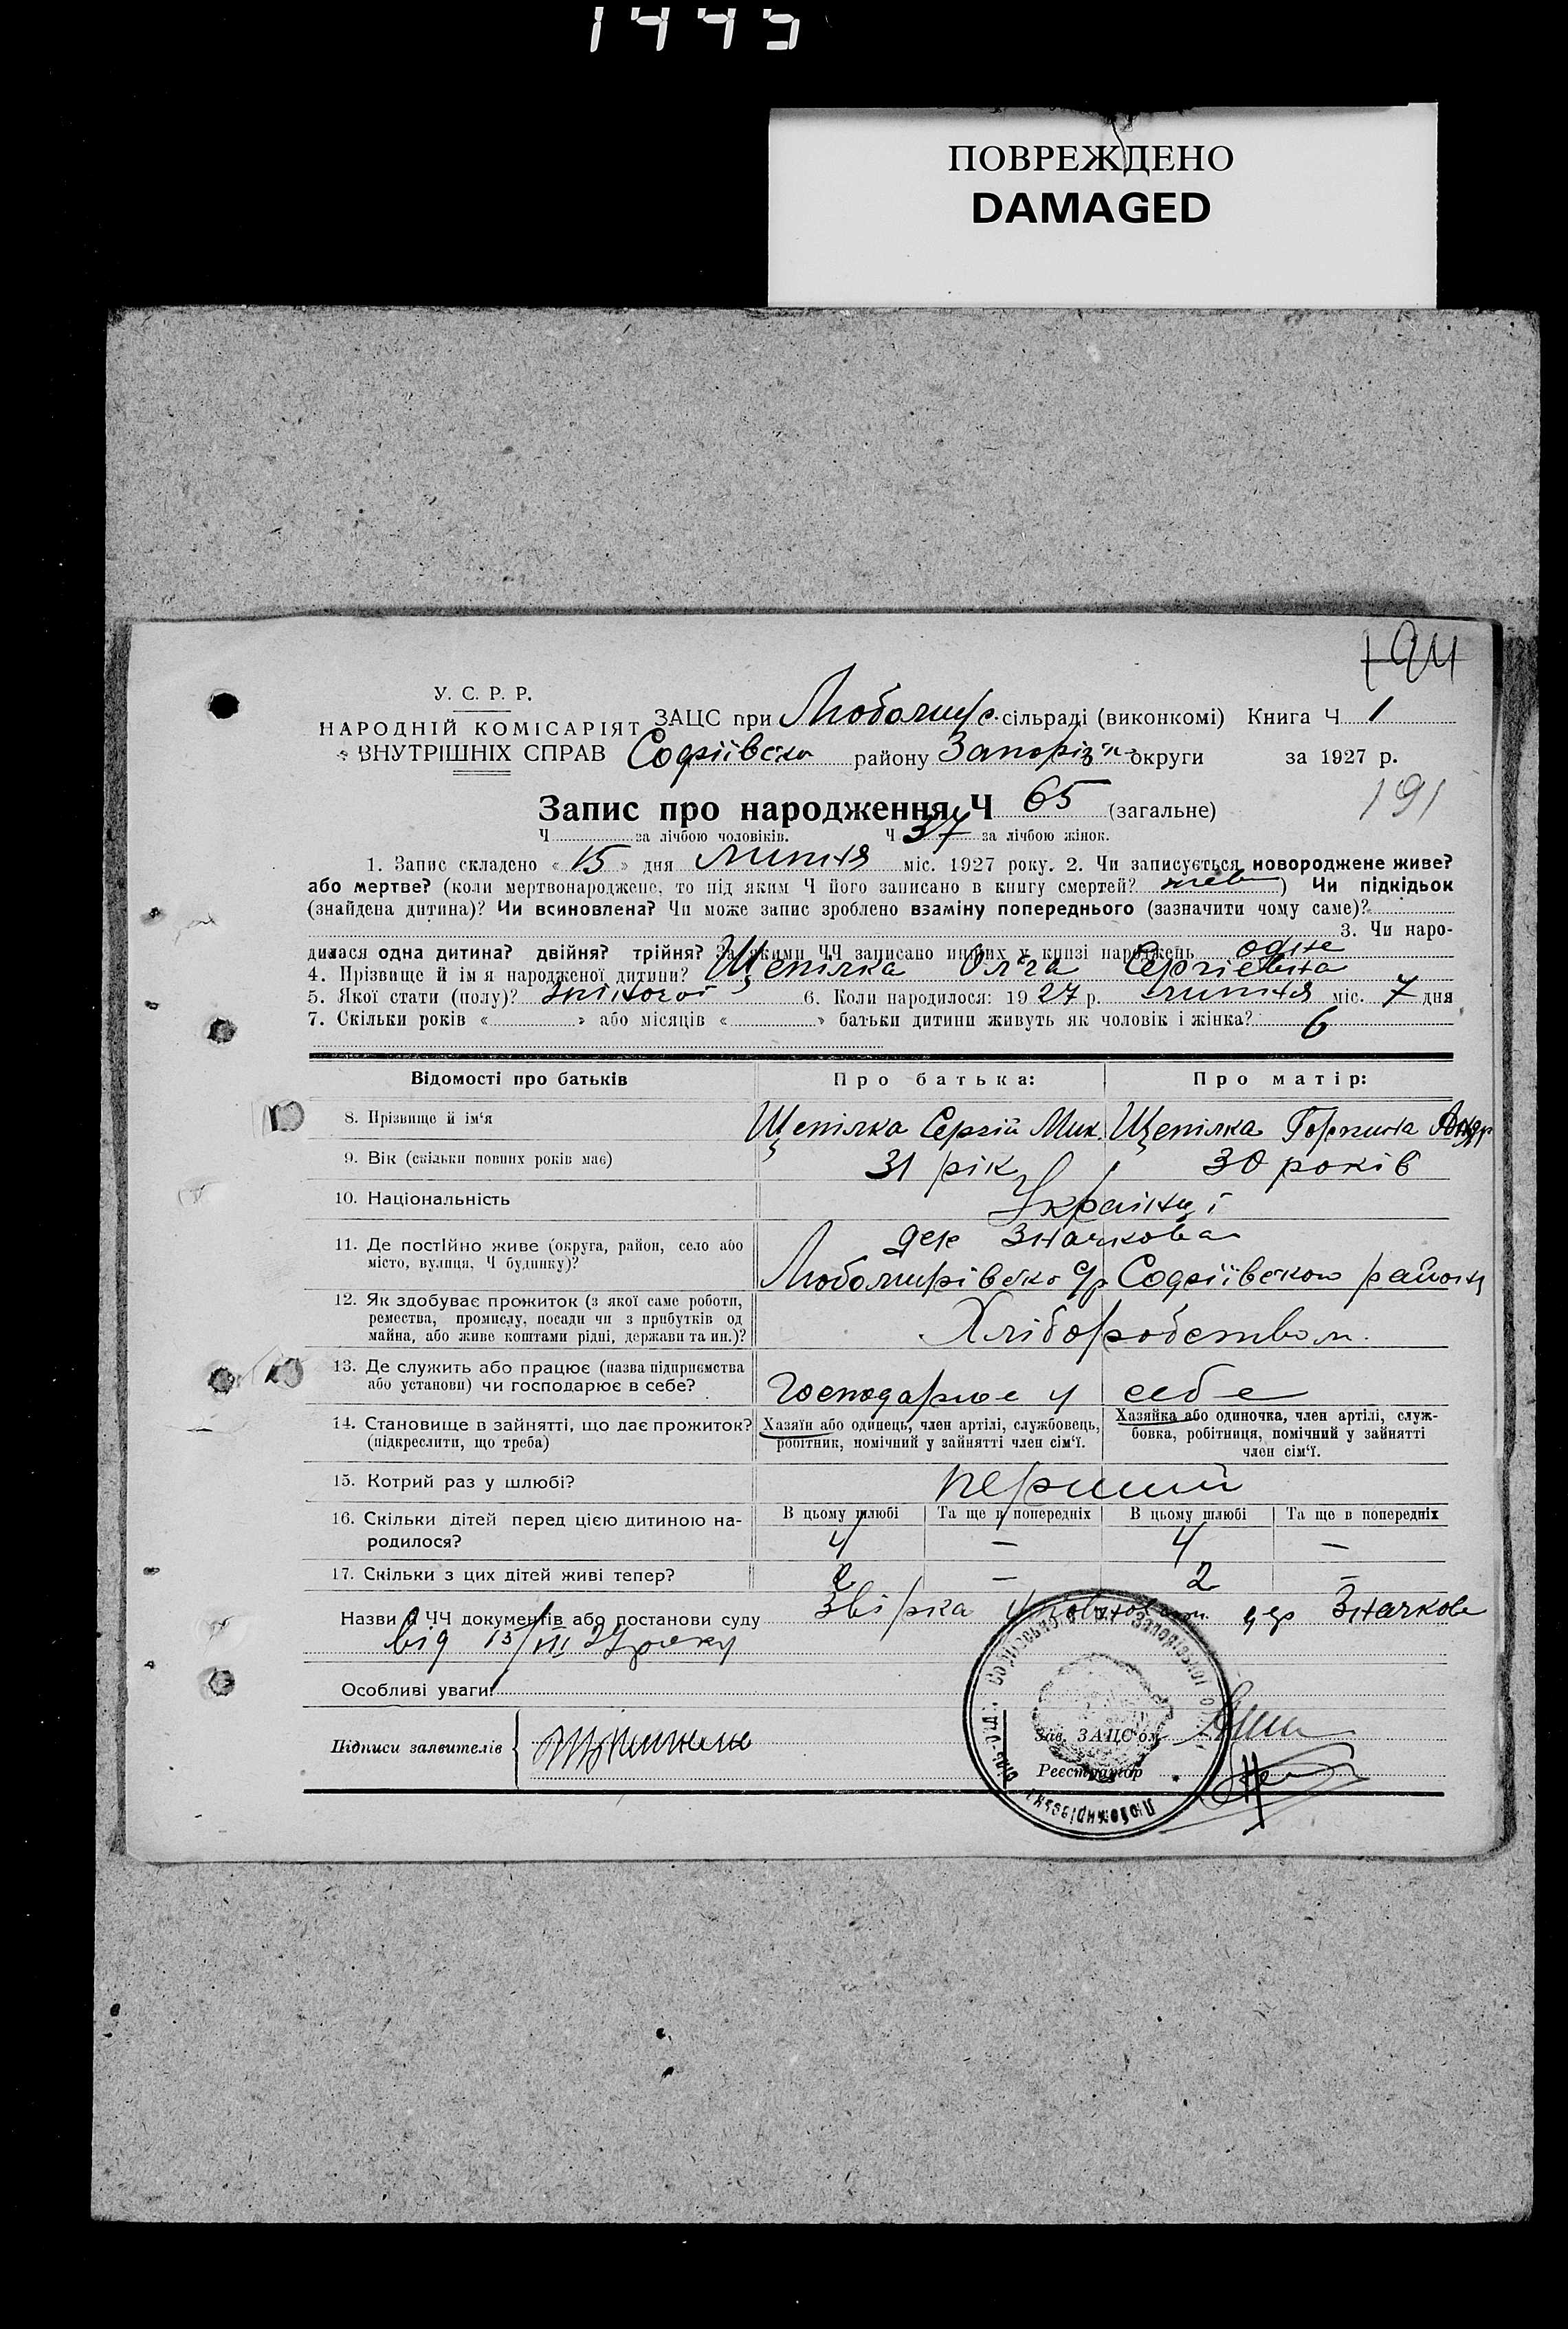 1445
ПОВРЕЖДЕНО
DAMAGED
194
У. С. Р. Р.
НАРОДНІЙ КОМІСАРІЯТ
ВНУТРІШНІХ СПРАВ
ЗАЦС при Любомирс. сільраді (виконкомі) Книга Ч 1
Софіївсько району Запоріз округи за 1927 р.
191
Запис про народження Ч 65 (загальне)
Ч за лічбою чоловіків. Ч 37 за лічбою жінок.
1. Запис складено « 15 » дня липня міс. 1927 року. 2. Чи записується новороджене живе?
або мертве? (коли мертвонароджене, то під яким Ч його записано в книгу смертей? ) Чи підкідьок
(знайдена дитина)? Чи всиновлена? Чи може запис зроблено взаміну попереднього (зазначити чому саме)?
3. Чи наро-
дилася одна дитина? двійня? трійня? За якими ЧЧ записано инших у книзі народжень одне
4. Прізвище й ім я народженої дитини? Щепілка Ольга Сергіевна
5. Якої стати (полу)? жіночої 6. Коли народилося: 1927 р. липня міс. 7 дня
7. Скільки років « » або місяців « » батьки дитини живуть як чоловік і жінка? 6
Відомості про батьків
Про батька:
Про матір:
8. Прізвище й ім‘я
Щепілка Сергій Мик.
Щепілка Горпина Андр
9. Вік (скільки повних років має)
31 рік
30 років
10. Національність
Українці
11. Де постійно живе (округа, район, село або
місто, вулиця, Ч будинку)?
дер Значкова
Любомирівсько с/р Софіївського району
12. Як здобуває прожиток (з якої саме роботи,
ремества, промислу, посади чи з прибутків од
майна, або живе коштами рідні, держави та ин.)?
Хліборобством.
13. Де служить або працює (назва підприємства
або установи) чи господарює в себе?
Господарює у себе
14. Становище в зайнятті, що дає прожиток?
(підкреслити, що треба)
Хазяїн або одинець, член артілі, службовець,
робітник, помічний у зайнятті член сім‘ї.
Хазяйка або одиночка, член артілі, служ-
бовка, робітниця, помічний у зайнятті
член сім‘ї.
15. Котрий раз у шлюбі?
перший
16. Скільки дітей перед цією дитиною на-
родилося?
В цьому шлюбі
Та ще в попередніх
В цьому шлюбі
Та ще в попередніх
4 — 4 —
17. Скільки з цих дітей живі тепер?
2 — 2 —
Назви й ЧЧ документів або постанови суду Звірка Уповноваж. дер Значкове
від 15/VII 27 року
Особливі уваги:
Підписи заявителів
Зав. ЗАЦС‘ом
Реєстратор